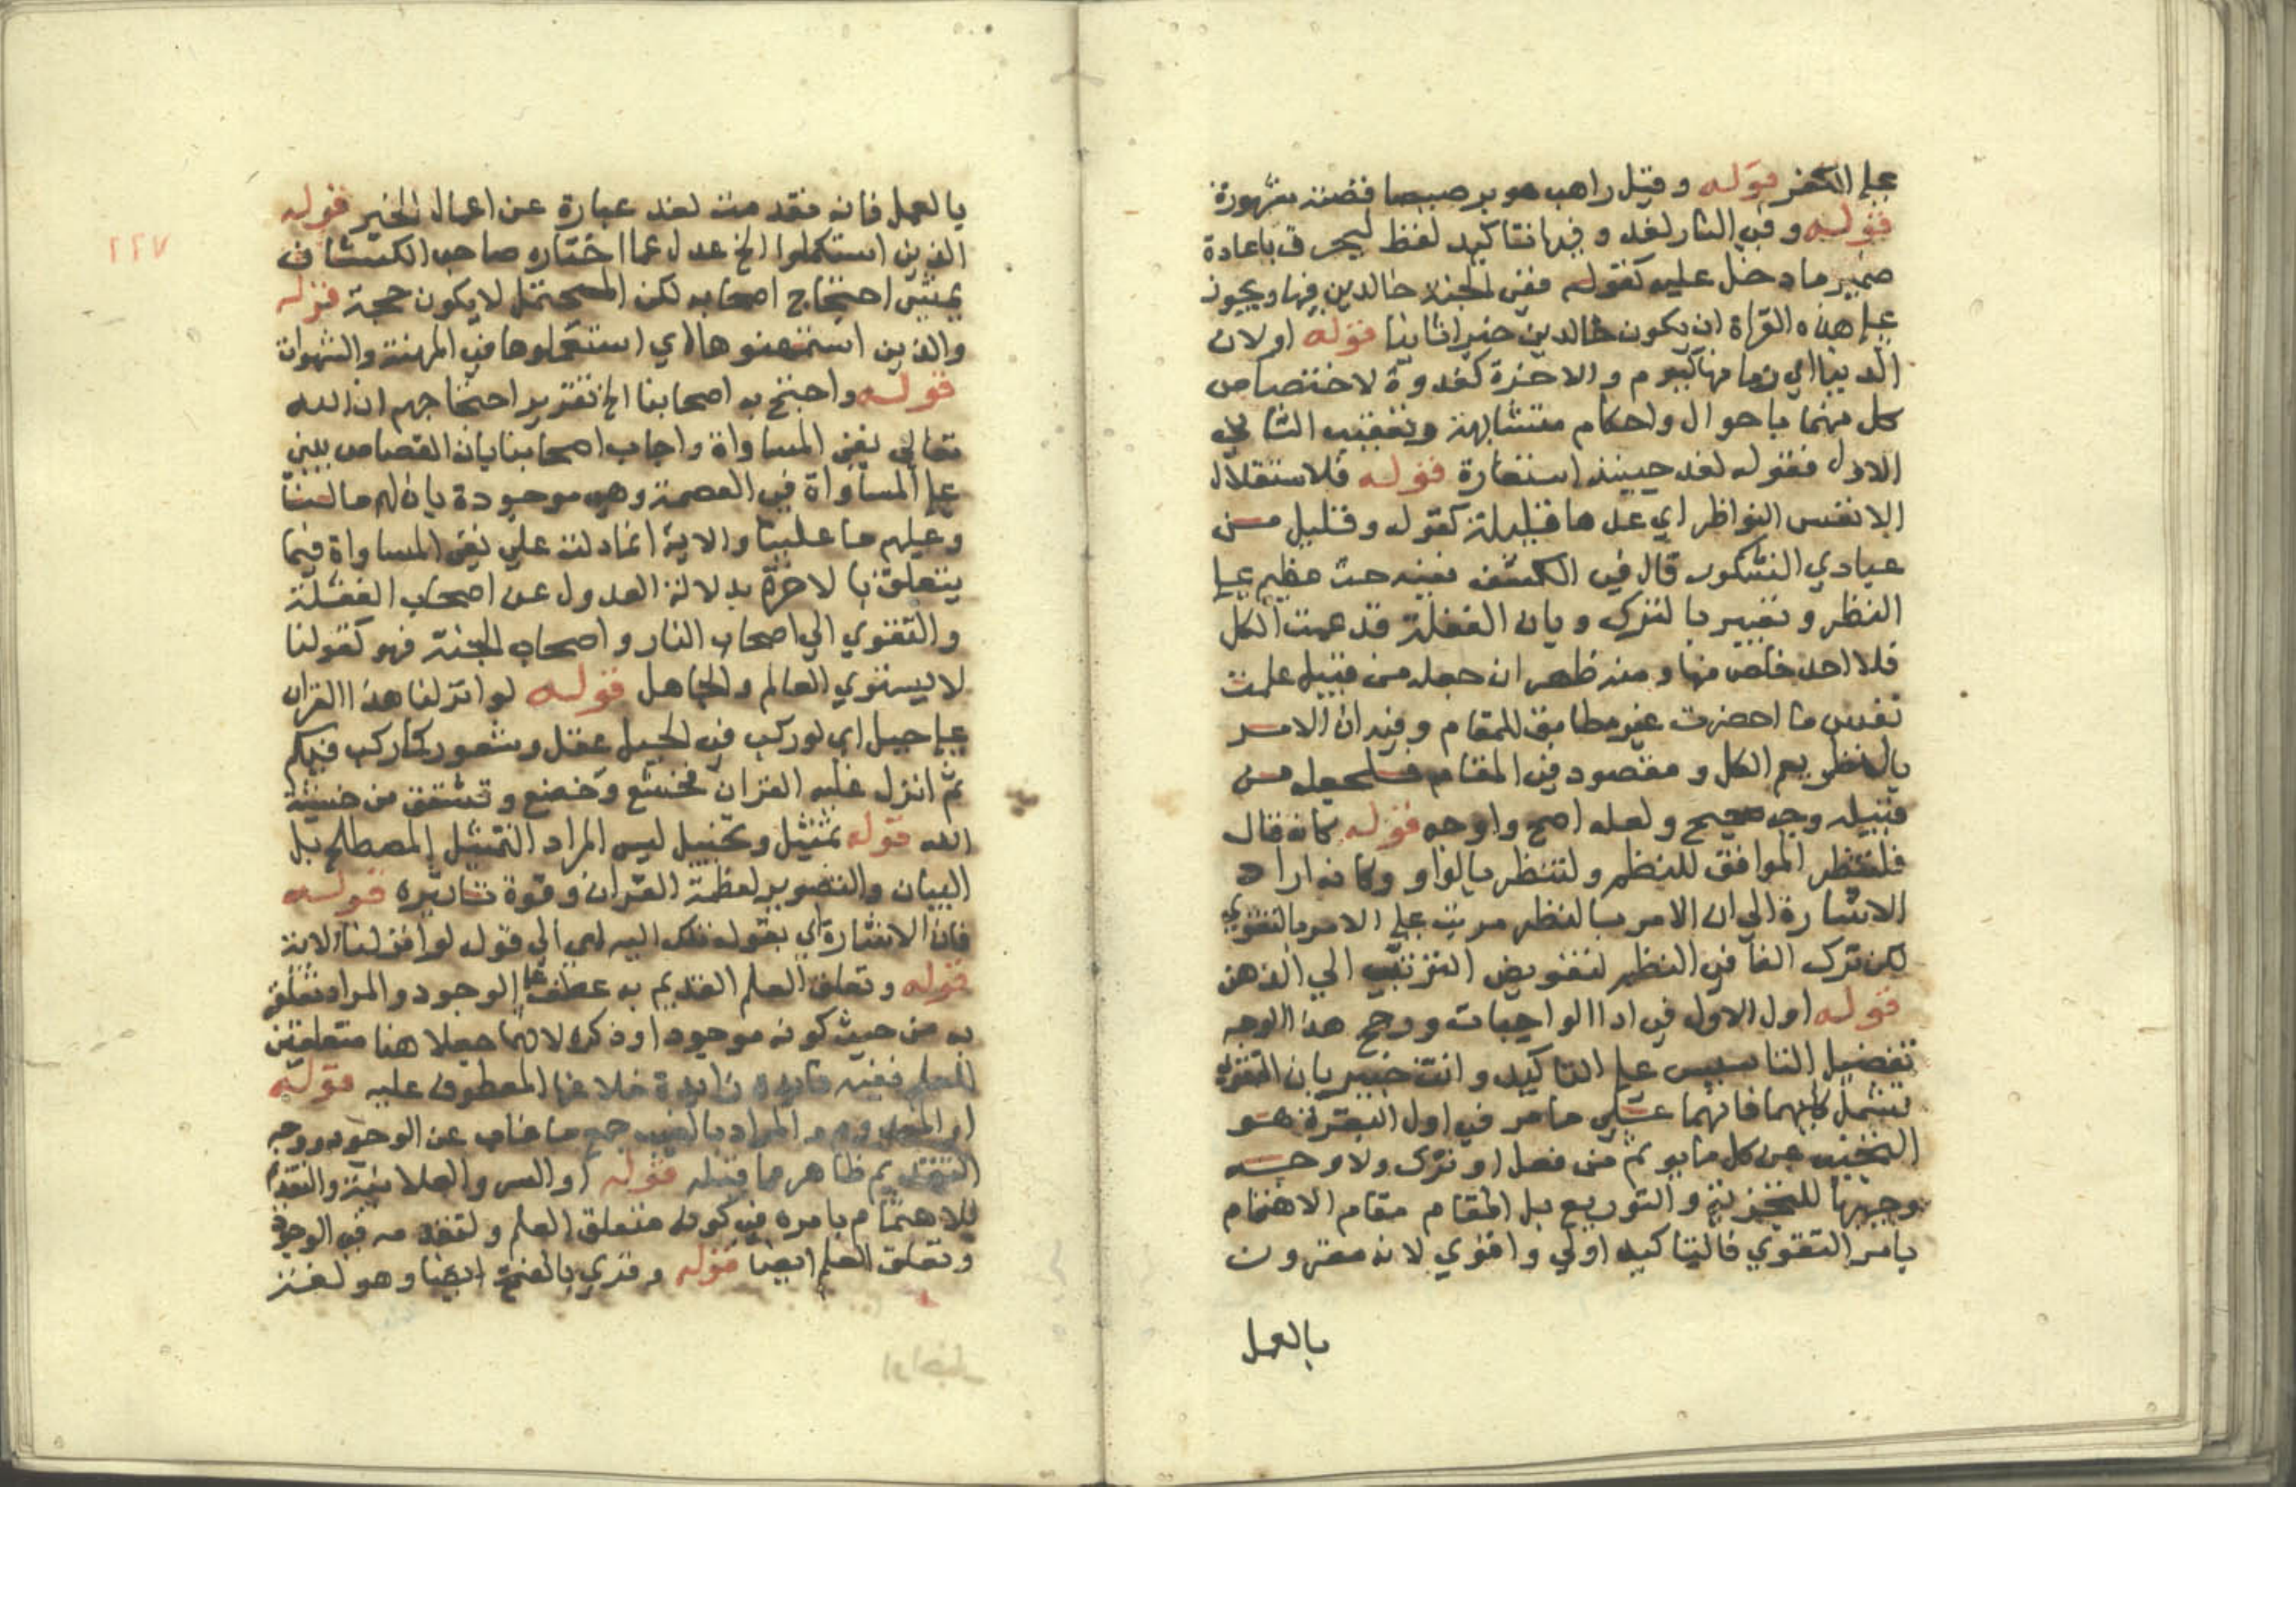 على الكفر قوله وقيل راهب هو برصيصا قصته مشهورة
قوله وفي النار لغو وفيها تاكيد لفظ ليحرف باعادة
ضمير ما دخل عليه كقوله ففي الجنة خالدين فيها ويجوز
على هذه القراة ان يكون خالدين خبرا ثانيا قوله او لان
الدنيا اي زمانها كيوم والاخرة كغدوة لاختصاص
كل منهما باحوال واحكام متشابهة وتعقيب الثاني
الاول فقوله لغد حينئذ استعارة قوله فلاستقلال
الانفس النواظر اي عدها قليلة كقوله وقليل من
عبادي الشكور قال في الكشف فيه حث عظيم على
النظر وتعيير بالترك وبان الغفلة قد عمت الكل
فلا احد خلص منها ومنه ظهر ان جعله من قبيل علمت
نفس ما احضرت غير مطابق للمقام وفيه ان الامر
بالنظر يعم الكل ومقصود في المقام فلجعله من
قبيله وجه صحيح ولعله اصح واوجه قوله كانه قال
فلتنظر الموافق للنظم ولتنظر بالواو وكانه اراد
الاشارة الى ان الامر بالنظر مرتب على الامر بالتقوي
لكن ترك الفا في النظم لتفويض الترتيب الي الذهن
قوله او الاول في ادا الواجبات ورجح هذا الوجه
تفضيل التاسيس على التاكيد وانت خبير بان التقوى
تشمل كليهما فانهما على ما مر في اول البقرة هو
التجنب عن كل ما يوثم من فعل او ترك ولا وجه
وجيها للتخزية والتوزيع بل المقام مقام الاهتمام
بامر التقوي فالتاكيد اولي واقوي لانه مقرون
بالعمل
بالعمل فانه مقدمت لغد عبارة عن اعمال الخير قوله
الذين استكملوا الخ عدل عما اختاره صاحب الكشاف
احتجاج اصحابه لكن المحتمل لا يكون حجة قوله
والذين استمهنوها اي استعملوها في المهنة والشهوات
قوله واحتج به اصحابنا الخ تقرير احتجاجهم ان الله
تعالى نفي المساواة واجاب اصحابنا بان القصاص يبني
على المساواة في العصمة وهي موجودة بان لهم ما لنا
وعليهم ما علينا والاية انما دلت علي نفي المساواة فيما
يتعلق بالاخرة بدلالة العدول عن اصحاب الغفلة
والتقوي الي اصحاب النار واصحاب الجنة فهو كقولنا
لا يستوي العالم والجاهل قوله لو انزلنا هذا القران
على جبل اي لو ركب في الجبل عقل وشعور كما ركب فيكم
ثم انزل عليه القران لخشع وخضع وتشقق من خشية
الله قوله تمثيل وتخييل ليس المراد التمثيل المصطلح بل
البيان والتصوير لعظمة القران وقوة تاثيره قوله
فان الاشارة اي بقوله تلك اليه اي الي قوله لو انزلنا الاية
قوله وتعلق العلم القديم به عطف على الوجود والمراد تعلقه
به من حيث كونه موجودا وذكره لانهما جعلا هنا متعلقين
للعلم ففيه فايدة زايدة خلا عنها المعطوف عليه قوله
او المعدوم المراد بالغيب جمع ما غاب عن الوجود ووجه
التقديم ظاهر مما قبله قوله او السر والعلانية والتقديم
للاهتمام بامره في كونه متعلق العلم ولتقدمه في الوجود
وتعلق العلم ايضا قوله وقري بالفتح ايضا وهو لغة
٢٢٧